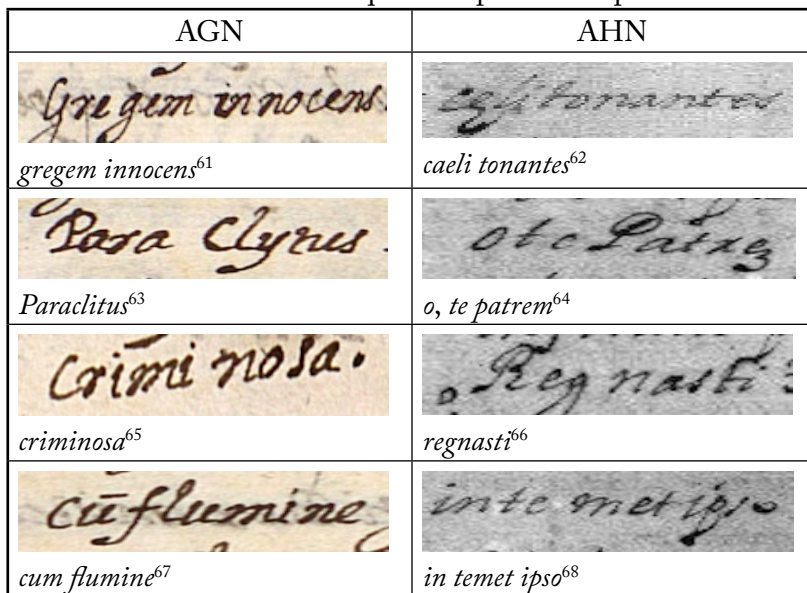 AGN AHN
Gregem in nocens. cęli tonantes
gregem innocens⁶¹ caeli tonantes⁶²
Para Clytus. o te Patrez
Paraclitus⁶³ o, te patrem⁶⁴
Crimi nosa. Reg nasti
criminosa⁶⁵ regnasti⁶⁶
cū flumine in te met ipso
cum flumine⁶⁷ in temet ipso⁶⁸